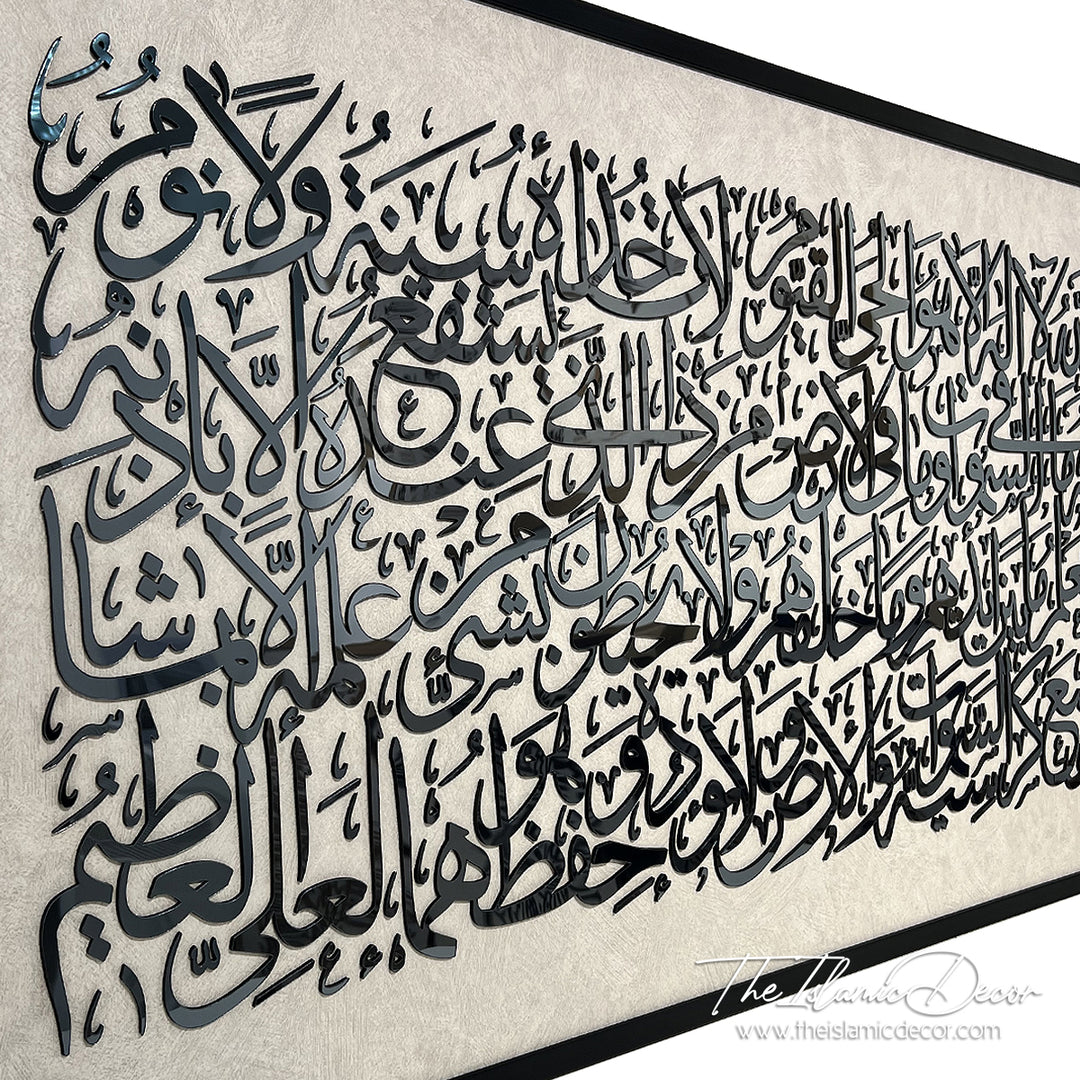 الله لا اله الا هو الحي القيوم لا تأخذه سنة ولا نوم
ما في السموات وما في الارض من ذا الذي يشفع عنده الا باذنه
يعلم ما بين ايديهم وما خلفهم ولا يحيطون بشيء من علمه الا بما شاء
وسع كرسيه السموات والارض ولا يؤده حفظهما وهو العلي العظيم
The Islamic Decor
www.theislamicdecor.com